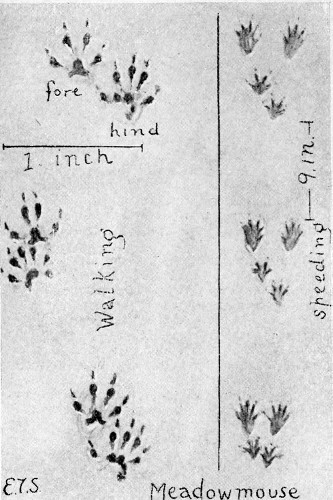 fore
hind
1. inch
Walking
speeding
9. in.
E.T.S.
Meadowmouse